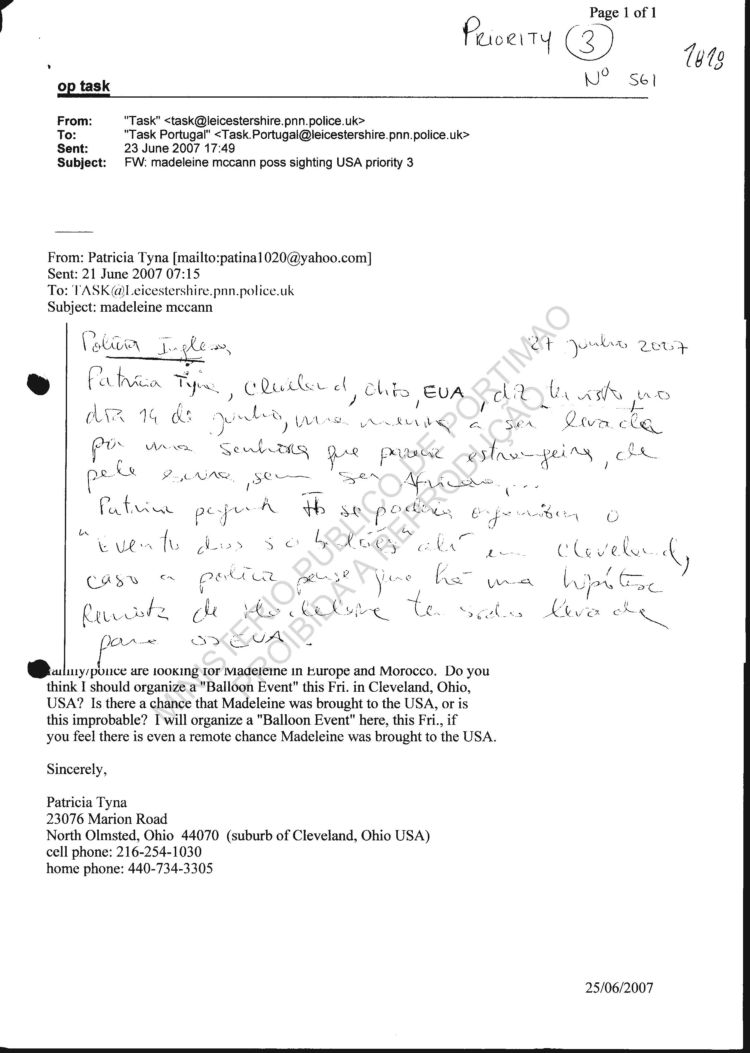 Page 1 of 1
PRIORITY 3
Nº 561
1818
op task
From: "Task" <task@leicestershire.pnn.police.uk>
To: "Task Portugal" <Task.Portugal@leicestershire.pnn.police.uk>
Sent: 23 June 2007 17:49
Subject: FW: madeleine mccann poss sighting USA priority 3
From: Patricia Tyna [mailto:patina1020@yahoo.com]
Sent: 21 June 2007 07:15
To: TASK@Leicestershire.pnn.police.uk
Subject: madeleine mccann
Policia Inglesa, 27 Junho 2007
Patricia Tyna, Cleveland, Ohio, EUA, diz ter visto, no
dia 14 de junho, uma menina a ser levada
por uma senhora que parecia estrangeira, de
pele escura, sem ser Africana...
Patricia pergunta se poderia organizar o
"Evento dos balões" ali em Cleveland,
caso a policia pense que há uma hipótese
Remota de Madeleine ter sido levada
para os EUA.
family/police are looking for Madeleine in Europe and Morocco. Do you
think I should organize a "Balloon Event" this Fri. in Cleveland, Ohio,
USA? Is there a chance that Madeleine was brought to the USA, or is
this improbable? I will organize a "Balloon Event" here, this Fri., if
you feel there is even a remote chance Madeleine was brought to the USA.
Sincerely,
Patricia Tyna
23076 Marion Road
North Olmsted, Ohio 44070 (suburb of Cleveland, Ohio USA)
cell phone: 216-254-1030
home phone: 440-734-3305
MINISTERIO PUBLICO DE PORTIMAO
PROIBIDA A REPRODUÇÃO
25/06/2007